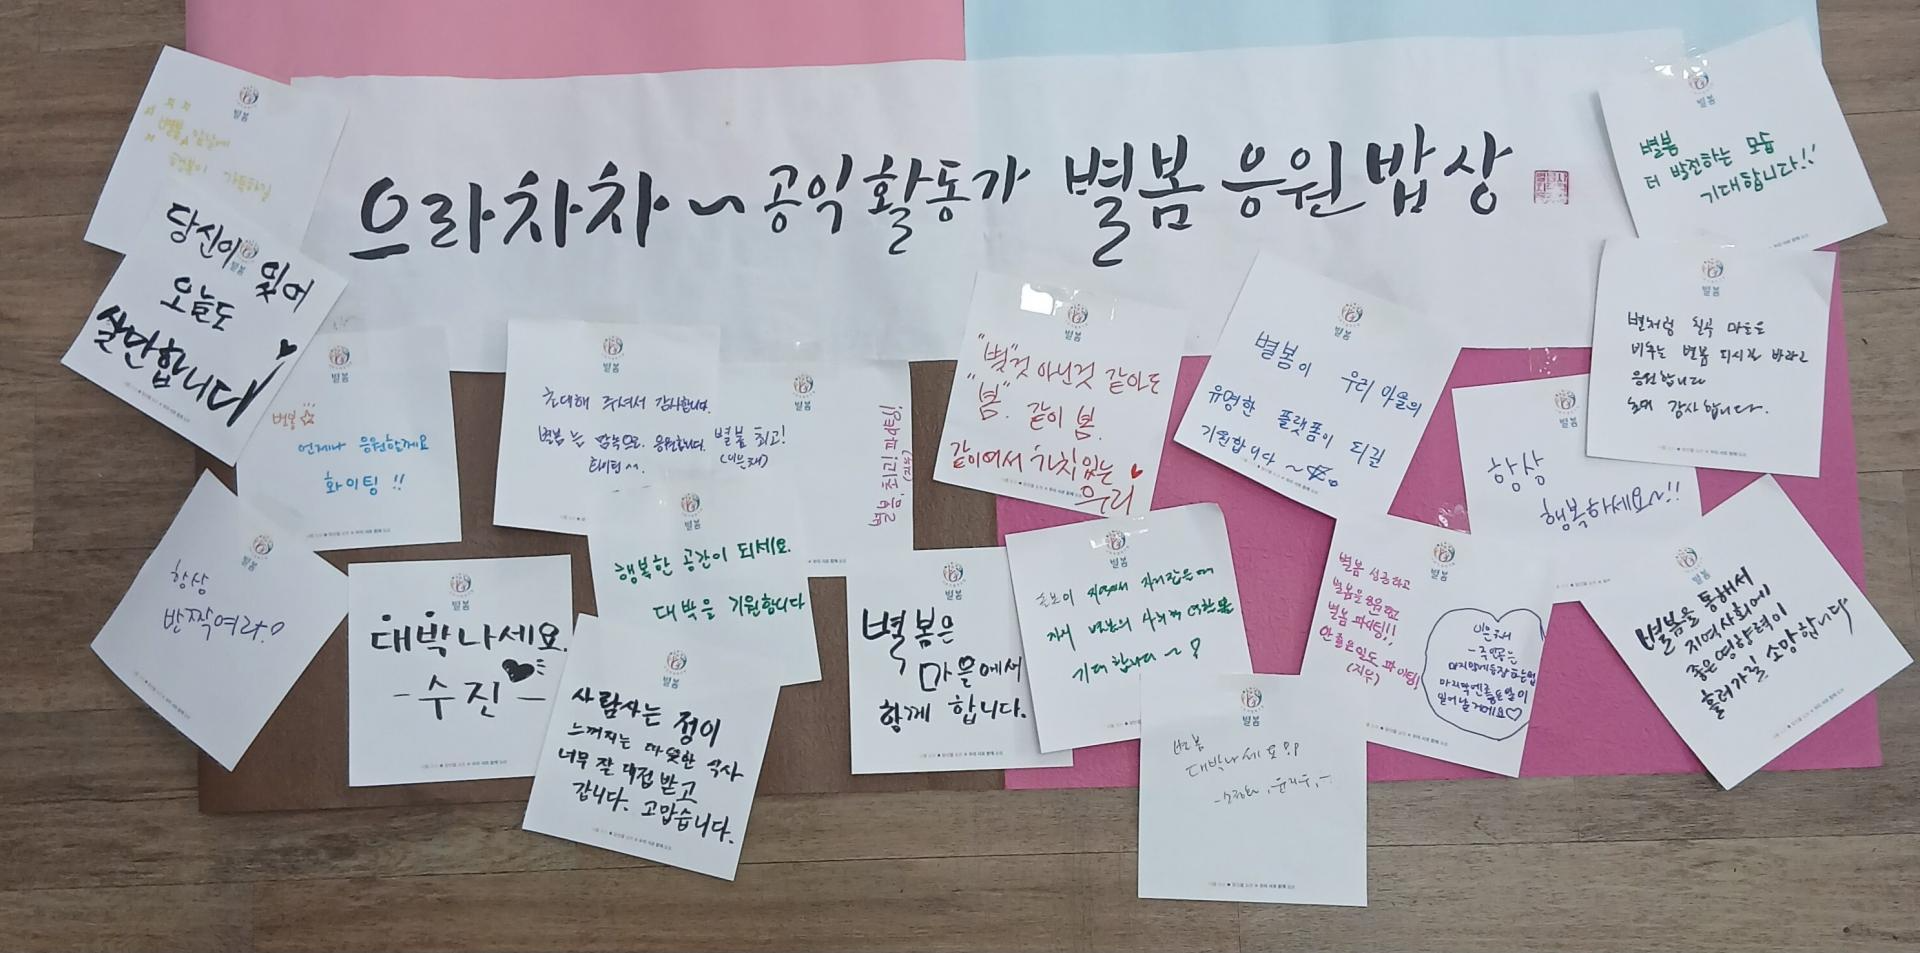 으라차차~공익활동가 별봄 응원밥상
별봄
별봄 앞날에
행복이 가득하길
당신이 있어
오늘도
살만합니다!
별봄
별봄☆
언제나 응원할게요
화이팅 !!
별봄
초대해 주셔서 감사합니다.
별봄는 맘속으로 응원합니다.
화이팅 ^^.
별봄
별봄 최고!
별봄, 최고! 파이팅!
(지우)
별봄
"별"것 아닌것 같아도
"봄". 같이 봄.
같이여서 가치있는
우리
별봄
별봄이 우리 마을의
유명한 플랫폼이 되길
기원합니다 ~
별봄
더 발전하는 모습
기대합니다!!
별봄
별봄
별처럼 칠곡 마을을
비추는 별봄 되시길 바라고
응원합니다
초대 감사합니다.
항상
행복하세요~!!
별봄
항상
반짝여라!
별봄
대박나세요.
- 수진 -
별봄
행복한 공간이 되세요.
대박을 기원합니다
별봄
사람사는 정이
느껴지는 따뜻한 식사
너무 잘 대접 받고
갑니다. 고맙습니다.
별봄
별봄은
마을에서
함께 합니다.
별봄
기대합니다~
별봄
별봄
대박나세요
별봄
별봄 성공하고
별봄을 응원하고
별봄 파이팅!!
안 좋은 일도 파이팅!
(지우)
-주인공은
마지막에 등장하는법
마지막엔 좋은일이
일어날거예요♡
별봄
별봄을 통해서
지역사회에
좋은 영향력이
흘러가길 소망합니다
별봄